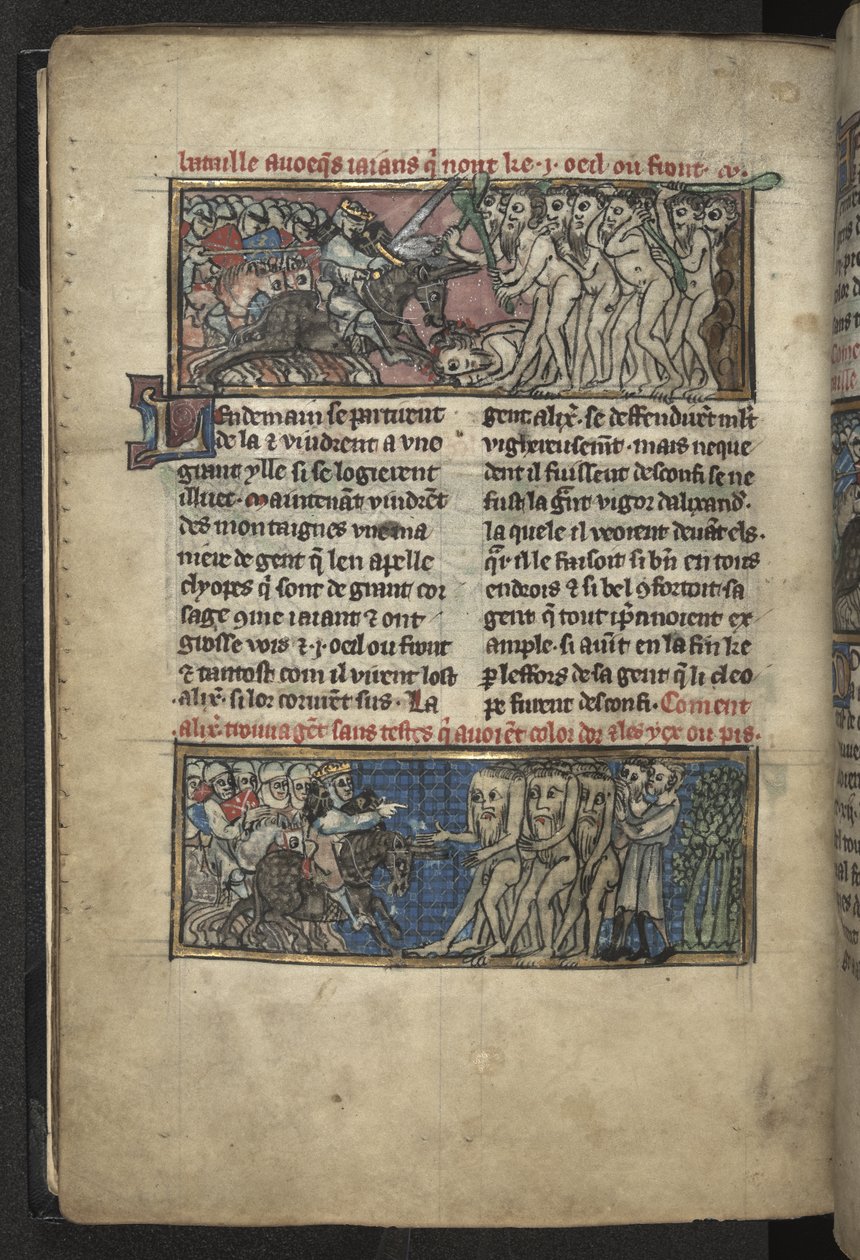 bataille auoeq̃s iaians q̃ nont ke .j. oeil ou front. cv.
Lendemain se partirent
de la ⁊ vindrent a vne
grant ylle si se logierent
illuec. Maintenãt vindrẽt
des montaignes vne ma
niere de gent q̃ len apelle
clyopes q̃ sont de grant cor
sage ꝯme iaiant ⁊ ont
grosse vois ⁊ .j. oeil ou front
⁊ tantost com il virent lost
alix̃. si lor corurẽt sus. La
gent alix̃. se deffendirẽt ml̃t
vighereusem̃t. mais neque
dent il fuissent desconfi se ne
fust la g̃nt vigor dalixand̃.
la quele il veoient deuãt els.
q̃r il le faisoit si bñ en tous
endrois ⁊ si bel ꝯfortoit sa
gent q̃ tout ip̃rnoient ex
ample. si auĩt en la fin ke
ꝑ leffors de sa gent q̃ li cleo
pe furent desconfi. Coment
alix̃. trouua gẽt sans testes q̃ auoiẽt color dor ⁊ les yex ou pis.